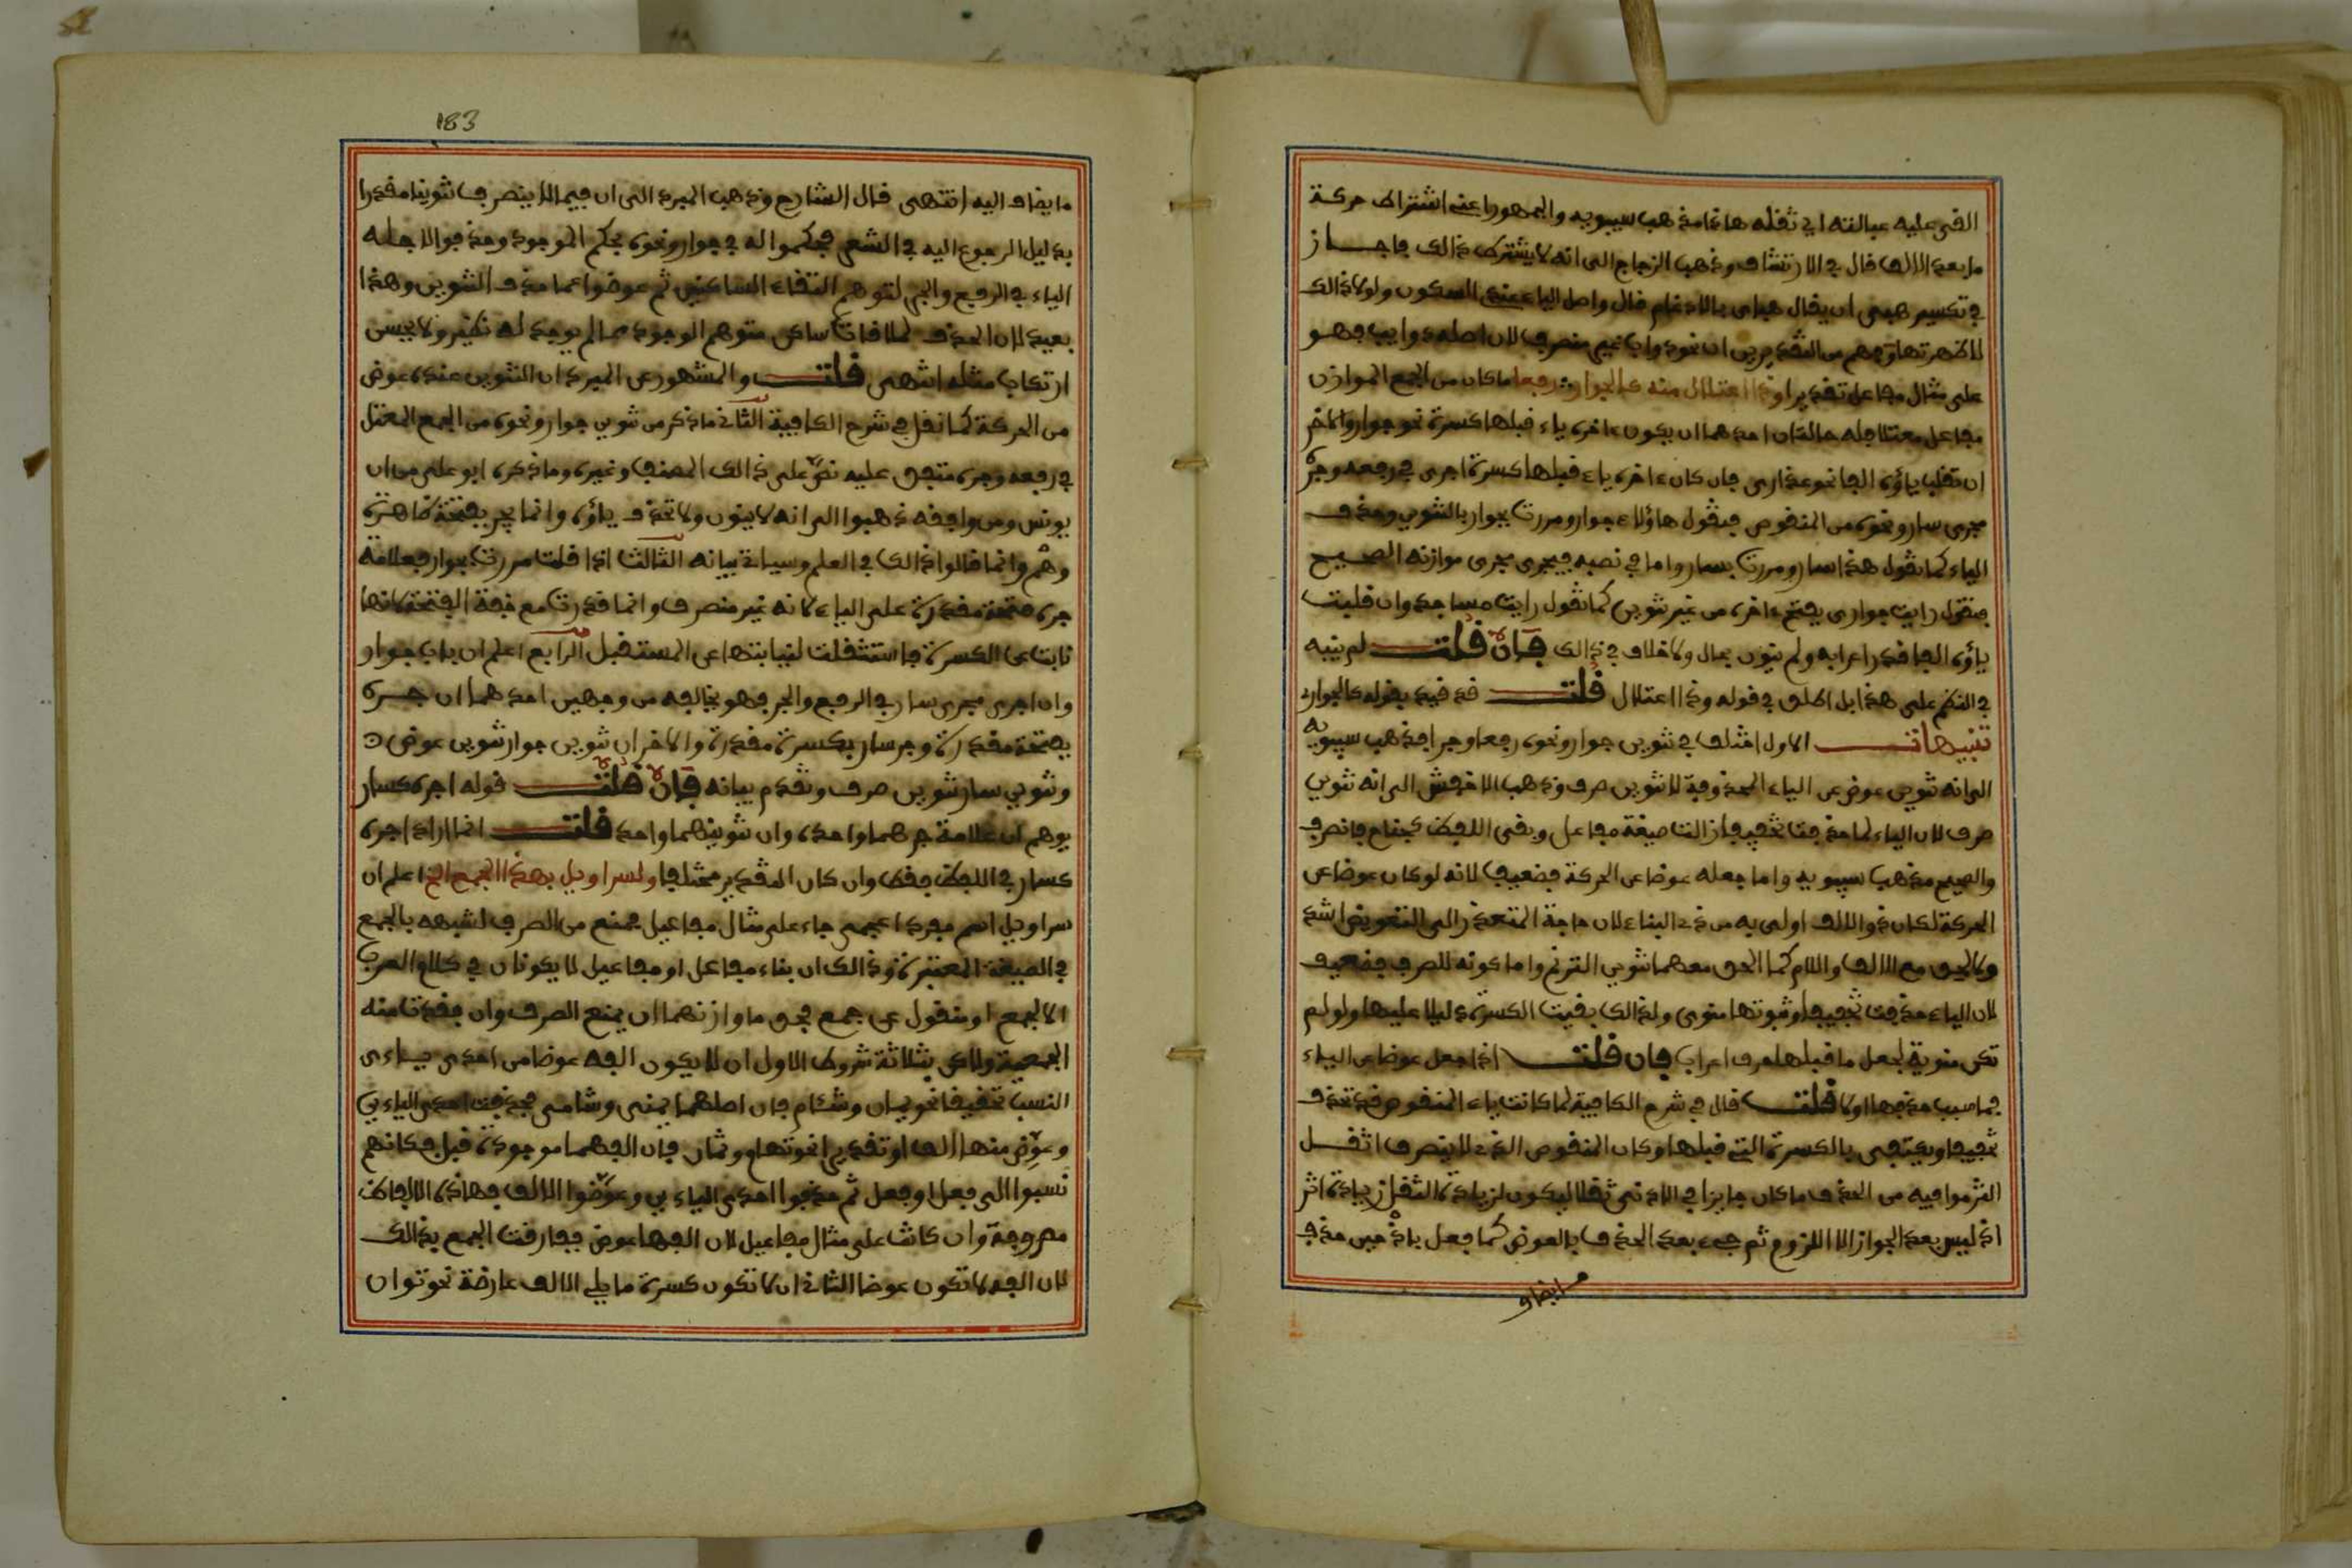 الفى عليه عبالته اي ثقله هاذا مذهب سيبويه والجمهور اعنى اشتراط حركة
ما بعد الالف قال في الارتشاف وذهب الزجاج الى انه لا يشترط ذالك فاجاز
في تكسير هبي ان يقال هباي بالادغام قال واصل الياء عنده السكون ولولا ذالك
لاظهرتها من التقديرين ان نحو دواب غير منصرف لان اصله دوابب فهو
على مثال مفاعل تقديرا وذا اعتلال منه كالجوار رفعا ما كان من الجمع الموازن
مفاعل معتلا فله حالتان احدهما ان يكون ءاخره ياء قبلها كسرة نحو جوار والاخر
ان تقلب ياؤه الفا نحو عذارى فان كان ءاخره ياء قبلها كسرة اجرى في رفعه وجره
مجرى سار ونحوه من المنقوص فتقول هاؤلاء جوار ومررت بجوار بالتنوين وحذف
الياء كما تقول هذا سار ومررت بسار واما في نصبه فيجرى مجرى موازنه الصحيح
فتقول رايت جواري بفتح ءاخره من غير تنوين كما تقول رايت مساجد وان قلبت
ياؤه الفا قدر اعرابه ولم ينون بحال ولا خلاف في ذالك فان قلت لم ينبه
في النظم على هذا بل اطلق في قوله وذا اعتلال قلت قد قيد بقوله كالجوارى
تنبيهات الاول اختلف في تنوين جوار ونحوه رفعا وجرا فذهب سيبويه
الى انه تنوين عوض عن الياء المحذوفة لا تنوين صرف وذهب الاخفش الى انه تنوين
صرف لان الياء لما حذفت تخفيفا زالت صيغة مفاعل وبقى اللفظ كجناح فانصرف
والصحيح مذهب سيبويه واما جعله عوضا عن الحركة فضعيف لانه لو كان عوضا عن
الحركة لكان ذو الالف اولى به من ذى الياء لان حاجة المتعذر الى التعويض اشد
ولالحق مع الالف واللام كما الحق معهما تنوين الترنم واما كونه للصرف فضعيف
لان الياء حذفت تخفيفا وثبوتها منوى ولذالك بقيت الكسرة دليلا عليها ولو لم
تكن منوية لجعل ما قبلها حرف اعراب فان قلت اذا جعل عوضا عن الياء
فما سبب حذفها اولا قلت قال في شرح الكافية لما كانت ياء المنقوص قد تحذف
تخفيفا ويكتفى بالكسرة التي قبلها وكان المنقوص الذى لا ينصرف اثقل
التزموا فيه من الحذف ما كان جايزا في الادنى ثقلا ليكون لزيادة الثقل زيادة اثر
اذ ليس بعد الجواز الا اللزوم ثم جىء بعد الحذف بالعوض كما فعل باذ حين حذف
ما يضاف
183
ما يضاف اليه انتهى قال الشارح وذهب المبرد الى ان فيما لا ينصرف تنوينا مقدرا
بدليل الرجوع اليه في الشعر فحكموا له في جوار ونحوه بحكم الموجود وحذفوا لاجله
الياء في الرفع والجر لتوهم التقاء الساكنين ثم عوضوا عما حذف التنوين وهذا
بعيد لان الحذف لملاقات ساكن متوهم الوجود مما لم يوجد له نظير ولا يحسن
ارتكاب مثله انتهى قلت والمشهور عن المبرد ان التنوين عنده عوض
من الحركة كما نقل في شرح الكافية الثاني ما ذكر من تنوين جوار ونحوه من الجمع المعتل
في رفعه وجره متفق عليه نص على ذالك المصنف وغيره وما ذكره ابو علي من ان
يونس ومن وافقه ذهبوا الى انه لا ينون ولا تحذف ياؤه وانما يجر بفتحة ظاهرة
وهم وانما قالوا ذالك في العلم وسياتي بيانه الثالث اذا قلت مررت بجوار فعلامة
جره فتحة مقدرة على الياء لانه غير منصرف وانما قدرت مع خفة الفتحة لانها
نابت عن الكسرة فاستثقلت لنيابتها عن المستثقل الرابع اعلم ان باب جوار
وان اجرى مجرى سار في الرفع والجر فهو يخالفه من وجهين احدهما ان جره
بفتحة مقدرة وجر سار بكسرة مقدرة والاخر ان تنوين جوار تنوين عوض
وتنوين سار تنوين صرف وتقدم بيانه فان قلت قوله اجره كسار
يوهم ان علامة جرهما واحدة وان تنوينهما واحد قلت انما اراد اجره
كسار في اللفظ فقط وان كان التقدير مختلفا ولسراويل بهذا الجمع الخ اعلم ان
سراويل اسم مفرد اعجمى جاء على مثال مفاعيل فمنع من الصرف لشبهه بالجمع
في الصيغة المعتبرة وذالك ان بناء مفاعل او مفاعيل لا يكونان في كلام العرب
الا لجمع او منقول عن جمع فحق ما وازنهما ان يمنع الصرف وان فقدتا منه
الجمعية ولاكن بثلاثة شروط الاول ان لا يكون الفه عوضا من احدى ياءى
النسب تخفيفا نحو يمان وشئام فان اصلهما يمني وشامي فحذفت احدى الياءين
وعوض منها الف او تقديرا نحو تهام وثمان فان الفهما موجودة قبل فكانهم
نسبوا الى فعل او فعل ثم حذفوا احدى الياءين وعوضوا الالف فهاذه الالفاظ
مصروفة وان كانت على مثال مفاعيل لان الفها عوض ففارقت الجمع بذالك
لان الفه لا تكون عوضا الثاني ان لا تكون كسرة ما يلي الالف عارضة نحو توان